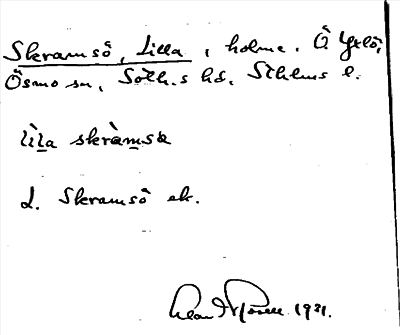 Skramsö, Lilla, holme. Ö. Yxlö,
Ösmo sn, Soth.s hd, Sthlms l.
lìla skràmsœ
L. Skramsö ek.
1931.